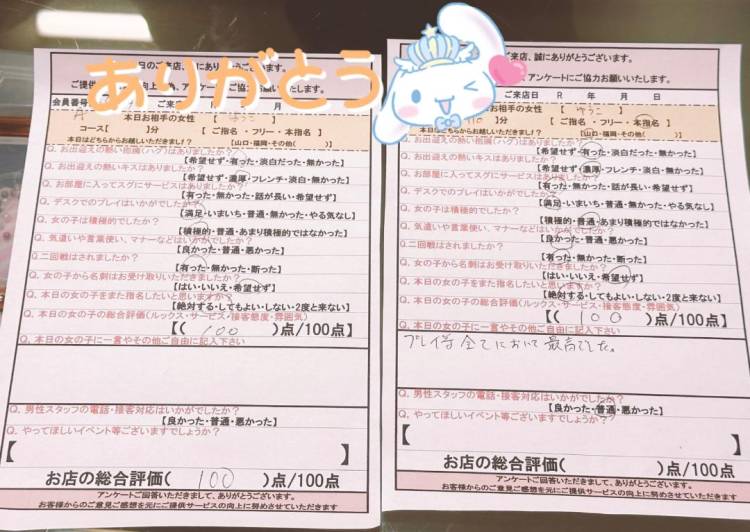 ありがとう
日のご来店、誠にありがとうございます。
会員番号
ご来店日 R 年 月
本日お相手の女性 【 ゆうこ
コース【 】分 【 ご指名 ・ フリー ・ 本指名 】
本日はどちらからお越しいただきましたか? 【山口・福岡・その他( )】
Q. お出迎えの熱い抱擁(ハグ)はありましたか?
【希望せず・有った・淡白だった・無かった】
Q. お出迎えの熱いキスはありましたか?
【希望せず・濃厚・フレンチ・淡白・無かった】
Q. お部屋に入ってスグにサービスはありましたか?
【有った・無かった・話が長い・希望せず】
Q. デスクでのプレイはいかがでしたか?
【満足・いまいち・普通・無かった・やる気なし】
Q. 女の子は積極的でしたか?
【積極的・普通・あまり積極的ではなかった】
Q. 気遣いや言葉使い、マナーなどはいかがでしたか?
【良かった・普通・悪かった】
Q. 二回戦はされましたか?
【有った・無かった・断った】
Q. 女の子から名刺はお受け取りいただきましたか?
【はい・いいえ・希望せず】
Q. 本日の女の子をまた指名したいと思いますか?
【絶対する・してもよい・しない・2度と来ない】
Q. 本日の女の子の総合評価(ルックス・サービス・接客態度・雰囲気)
【( 100 )点/100点】
Q. 本日の女の子に一言やその他ご自由に記入下さい
Q. 男性スタッフの電話・接客対応はいかがでしたか?
【良かった・普通・悪かった】
Q. やってほしいイベント等ございますでしょうか?
【 】
お店の総合評価( 100 )点/100点
アンケートご回答いただきまして、ありがとうございます。
お客様からのご意見ご感想を元にご提供サービスの向上に努めさせていただきます
ご来店、誠にありがとうございます。
、アンケートにご協力お願いいたします。
ご来店日 R 年 月 日
本日お相手の女性 【 ゆうこ 】
】分 【 ご指名 ・ フリー ・ 本指名 】
本日はどちらからお越しいただきましたか? 【山口・福岡・その他( )】
Q. お出迎えの熱い抱擁(ハグ)はありましたか?
【希望せず・有った・淡白だった・無かった】
Q. お出迎えの熱いキスはありましたか?
【希望せず・濃厚・フレンチ・淡白・無かった】
Q. お部屋に入ってスグにサービスはありましたか?
【有った・無かった・話が長い・希望せず】
Q. デスクでのプレイはいかがでしたか?
【満足・いまいち・普通・無かった・やる気なし】
Q. 女の子は積極的でしたか?
【積極的・普通・あまり積極的ではなかった】
Q. 気遣いや言葉使い、マナーなどはいかがでしたか?
【良かった・普通・悪かった】
Q. 二回戦はされましたか?
【有った・無かった・断った】
Q. 女の子から名刺はお受け取りいただきましたか?
【はい・いいえ・希望せず】
Q. 本日の女の子をまた指名したいと思いますか?
【絶対する・してもよい・しない・2度と来ない】
Q. 本日の女の子の総合評価(ルックス・サービス・接客態度・雰囲気)
【( 100 )点/100点】
Q. 本日の女の子に一言やその他ご自由に記入下さい
プレイ等全てにおいて最高でした。
Q. 男性スタッフの電話・接客対応はいかがでしたか?
【良かった・普通・悪かった】
Q. やってほしいイベント等ございますでしょうか?
【 】
お店の総合評価( )点/100点
アンケートご回答いただきまして、ありがとうございます。
お客様からのご意見ご感想を元にご提供サービスの向上に努めさせていただきます